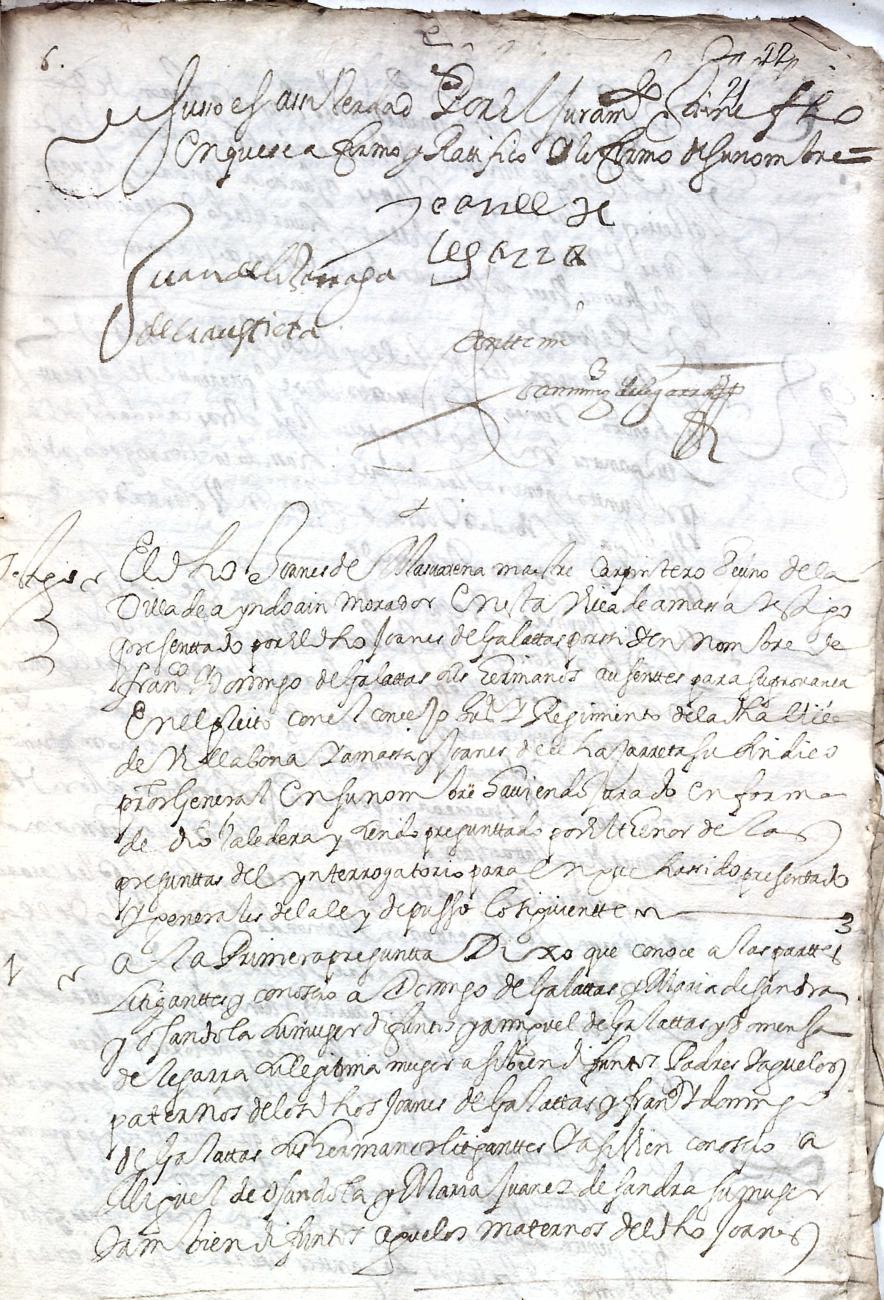 6.
22
21
Juro es a su verdad Por el Juramto que tiene fho
en que se afirmo y Ratifico y lo firmo de su nombre =
Joanes de
Legarra
Juan de lizarraga
de
Ante mi
Domingo de legarra
To tigo
3
El dho Joanes de maestre Carpintero Vezino de la
Villa de ayndoain morador en esta Villa de amassa testigo
presenttado por el dho Joanes de Galattas por si y en nombre de
franco y Domingo de Galattas sus hermanos ausenttes para su provanca
en el pleito con el concejo Justa y Regimiento de la dha Villa
de Villabona y amassa y Joanes de su sindico
pror General en su nombre haviendo Jurado en forma
de dro Valedera y siendo preguntado por el thenor de las
preguntas del ynterrogatorio para en que ha sido presentado
y generales de la ley depusso lo siguientte
3
1
a la Primera pregunta Dixo que conoce a las parttes
Litiganttes y conoscio a Domingo de Galattas y Maria de sandra
y osandola su muger difuntos y a miguel de Galattas y domensa
de legarra su legitima muger assi bien difuntos Padres y aguelos
paternos de los dhos Joanes de Galattas y franco y doming
de Galattas sus hermanos litiganttes y assi bien conoscio a
Miguel de osandola y Maria Juanez de sandra su muger
tambien difuntos aguelos maternos del dho Joanes